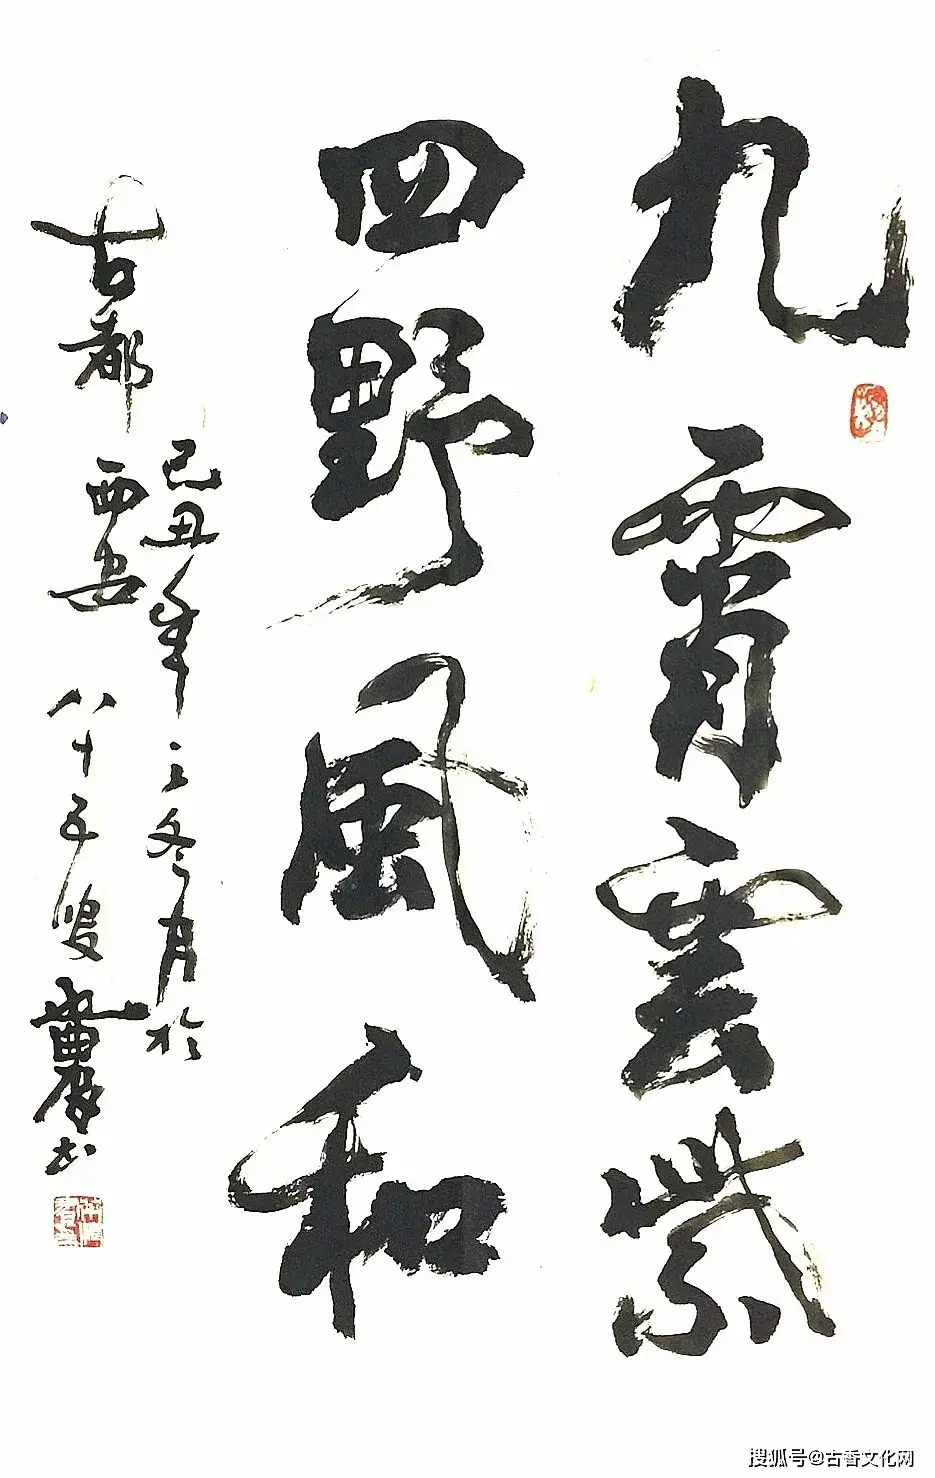 九霄雲紫
四野風和
己丑年之冬月於
古都西安八十五叟書
搜狐号@古香文化网